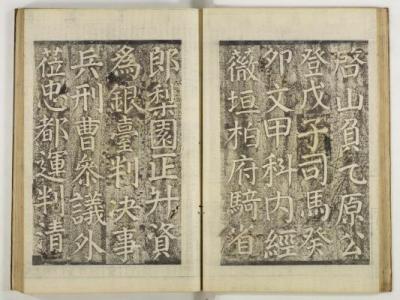 啓山負乞原公
登戊子司馬癸
卯文甲科内經
薇垣栢府騎省
郎梨園正升資
爲銀臺判决事
兵刑曹參議外
莅忠都運判清